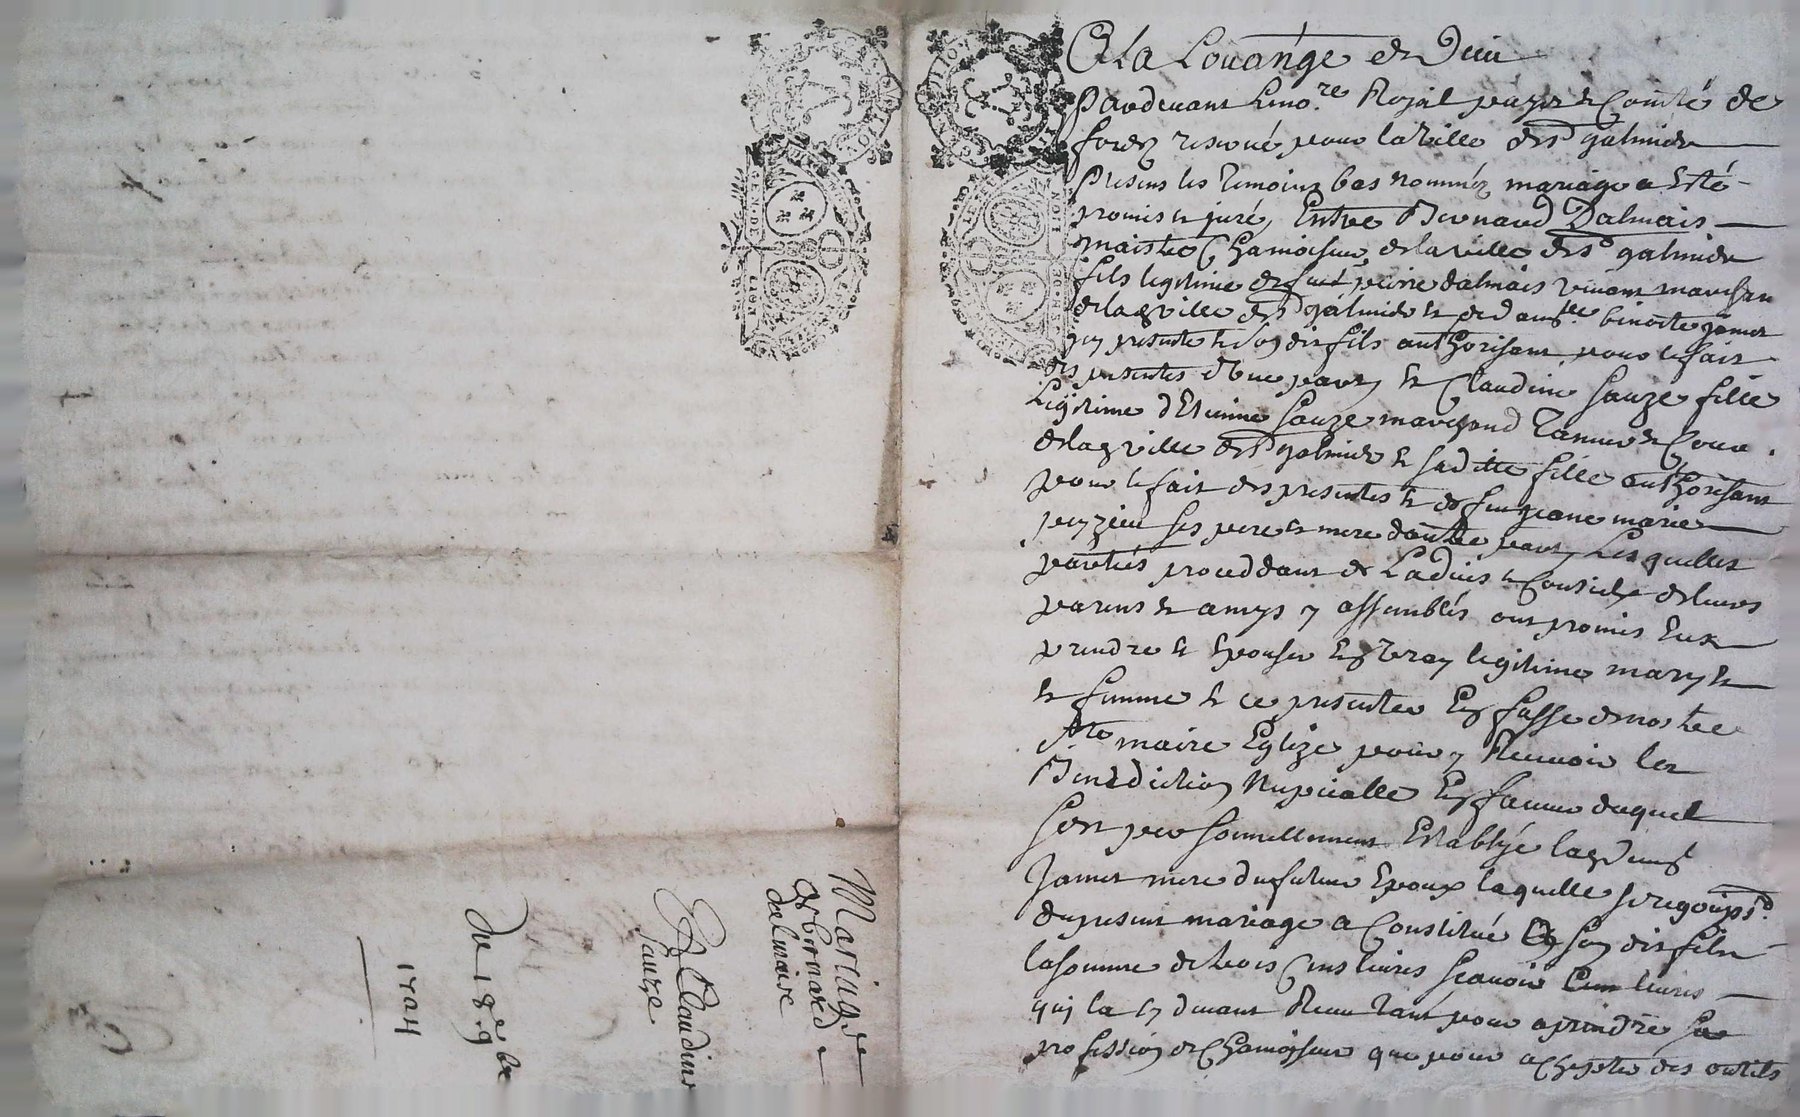 A la Louange de Dieu
Pardevant Le no.re Royal au pays et Comté de
forez reservé pour la ville de St galmier
Presens les temoins bas nommés mariage a esté
promis et juré, Entre Bernard Dalmais
maistre Chamoiseur de la ville de St galmier
fils legitime de feu pierre dalmais vivant marchan
de lad ville de St galmier et de dam.lle benoite jamet
icy presente et son dit fils authorisant pour le fait
des presentes d'Une part, et Claudine Sauze fille
Legitime d'Etienne Sauze marchand Tanneur
de lad ville de St galmier et sa ditte fille authorisant
pour le fait des presentes et de feue jeane marie
ses pere et mere d'autre part, Lesquelles
parties proceddant de L'advis et Conseil de leurs
parens et amys y assemblés ont promis Eux
prendre et Epouser En vray legitime mary et
et femme et ce presenter En fasse de nostre
Ste maire Eglize pour y Recevoir la
Benediction Nupcialle En faveur duquel
sest personnellement Establye lad
Jamet mere du futur Epoux laquelle
du present mariage a Constitué En son dit fils
la somme de trois Cens livres scavoir Cent livres
quil a cy devant Receu tant pour aprendre sa
profession de Chamoiseur que pour achepter des outils
Mariage
de bernard
delmaire
Et Claudine
sauze
du 18.e 9bre
1704
GEN DE LION
GEN DE LION